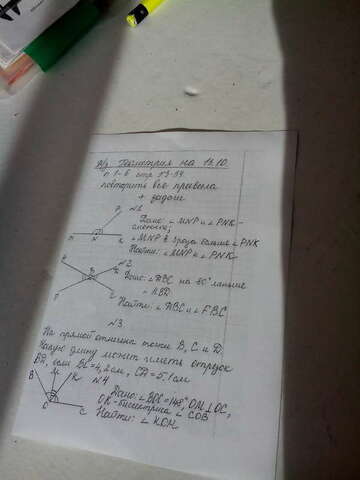 Д/з Геометрия на 13.10.
п 1-6 стр
повторить все правила
+ задачи
№1
P
Дано: ∠MNP и ∠PNK -
смежные;
M N K
∠MNP в 3 раза больше ∠PNK
Найти: ∠MNP и ∠PNK
№2
Дано: ∠ABC на 80° меньше
∠ABD
Найти: ∠ABC и ∠FBC
№3
На прямой отмечены точки B, C и D.
Какую длину может иметь отрезок
BD, если BC = 4,2 см, CD = 5,1 см
№4
B M K
O C
Дано: ∠BOC = 148°, OM⊥OC,
OK - биссектриса ∠COB
Найти: ∠KOM.